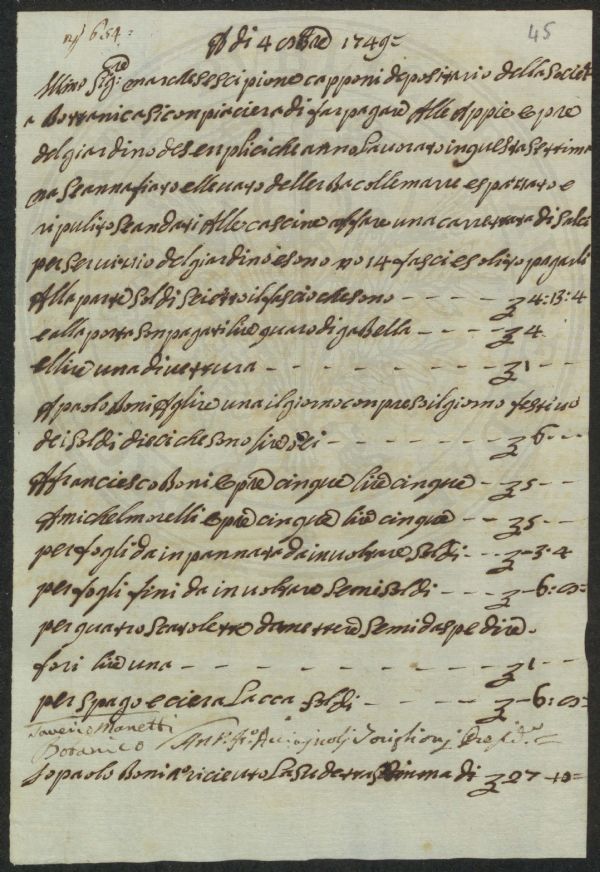 n° 634
45
A di 4 8bre 1749
Illmo Sigre marchese scipione capponi depositario della Societ
a Bottanica si conpiacera di far pagare Alle Appie opre
del giardino de senplici che anno Lavorato in questa settima
na Scannafiato ellevato dell erba colle marre espazzato e
ripulito Ø andati Alle cascine affare una carrettata di Salci
per servizio del giardino esono no 14 fasci e solito pagarli
Alla parte Soldi Sei etto il fascio che sono - - - - 4:13:4
e alla porta son pagati lire quatro di gabella - - - - 4
e llire una di vettura - - - - - - - - 1 - -
A paolo Boni A lire una il giorno conpreso il giorno festivo
dei soldi dieci che sono lire sei - - - - - - 6 - -
A franciesco Boni opre cinque lire cinque - - 5 - -
A michel morelli opre cinque lire cinque - - 5 - -
per fogli da inpannata da involtare Soldi - - - 3:4
per fogli fini da involtare Semi Soldi - - - - 6:8
per quatro scatolette da mettere Semi da spedire
fori lire una - - - - - - - - 1 - -
per spago e ciera Lacca Soldi - - - - - 6:8
Saverio Manetti
Botanico
Io paolo Boni o ricieuto La sudetta somma di 27 -10-